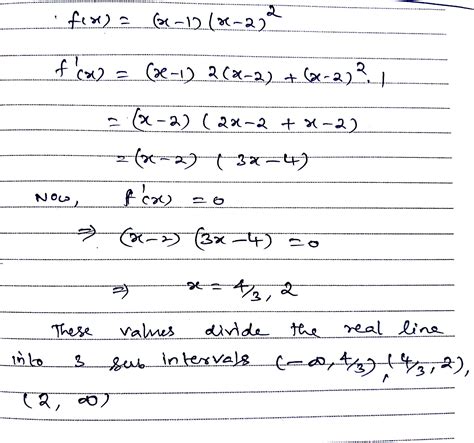 f(x) = (x-1)(x-2)²
f'(x) = (x-1) 2(x-2) + (x-2)².1
= (x-2) (2x-2 + x-2)
= (x-2) (3x-4)
Now, f'(x) = 0
⇒ (x-2) (3x-4) = 0
⇒ x = 4/3, 2
These values divide the real line
into 3 sub intervals (-∞, 4/3), (4/3, 2),
(2, ∞)